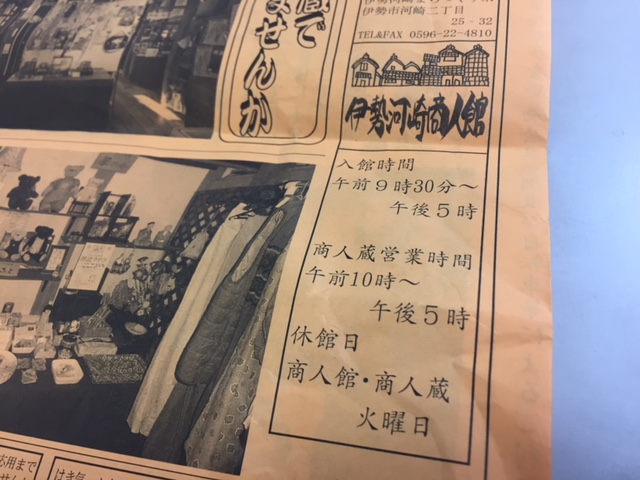 蔵で
ませんか
伊勢市河崎二丁目
25-32
TEL&FAX 0596-22-4810
伊勢河崎商人館
入館時間
午前9時30分～
午後5時
商人蔵営業時間
午前10時～
午後5時
休館日
商人館・商人蔵
火曜日
応用まで
はき気